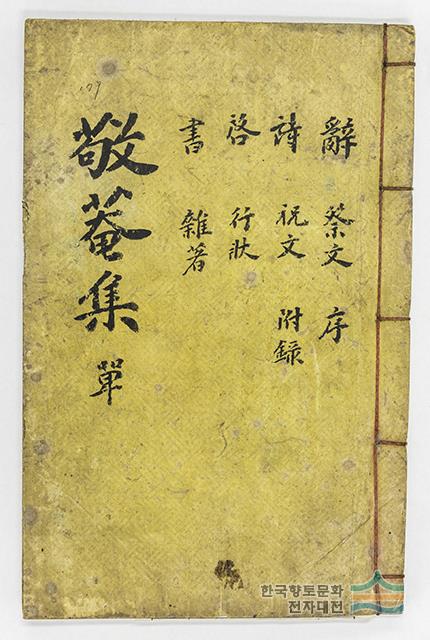 敬菴集 單
辭 祭文 序
詩 祝文 附録
啓 行狀
書 雜著
179
한국향토문화
전자대전